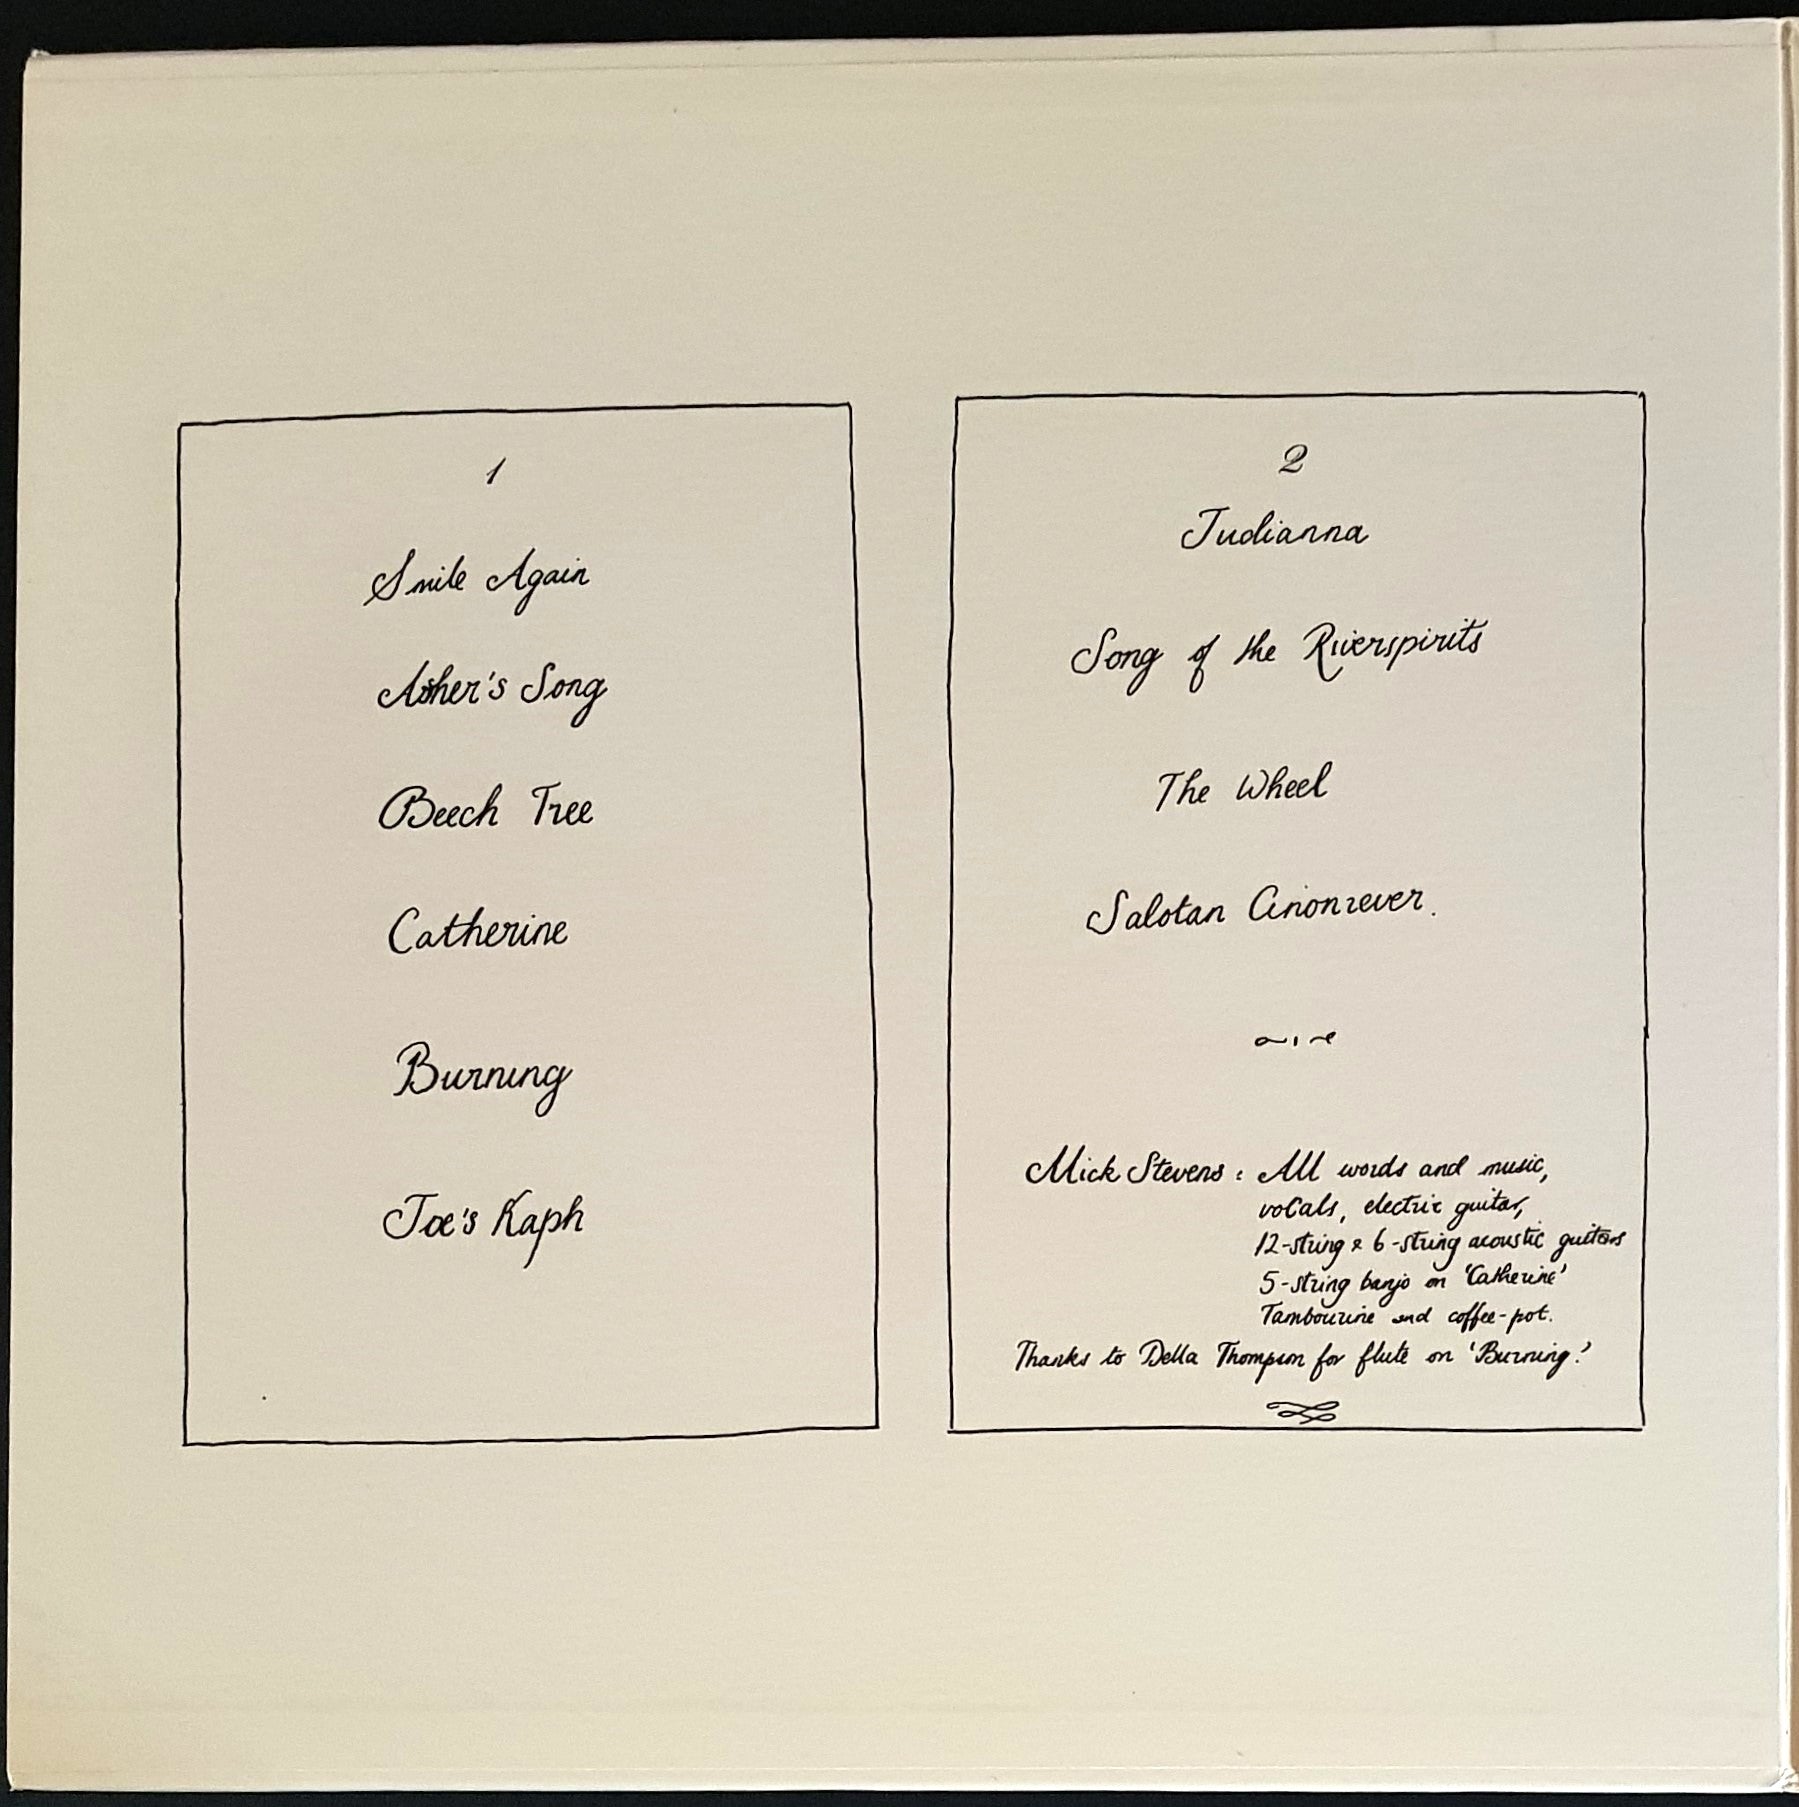 1
Smile Again
Asher's Song
Beech Tree
Catherine
Burning
Joe's Kaph
2
Judianna
Song of the Riverspirits
The Wheel
Salotan Cinonrever.
Mick Stevens : All words and music,
vocals, electric guitar,
12-string & 6-string acoustic guitars
5-string banjo on 'Catherine'
Tambourine and coffee-pot.
Thanks to Della Thompson for flute on 'Burning.'